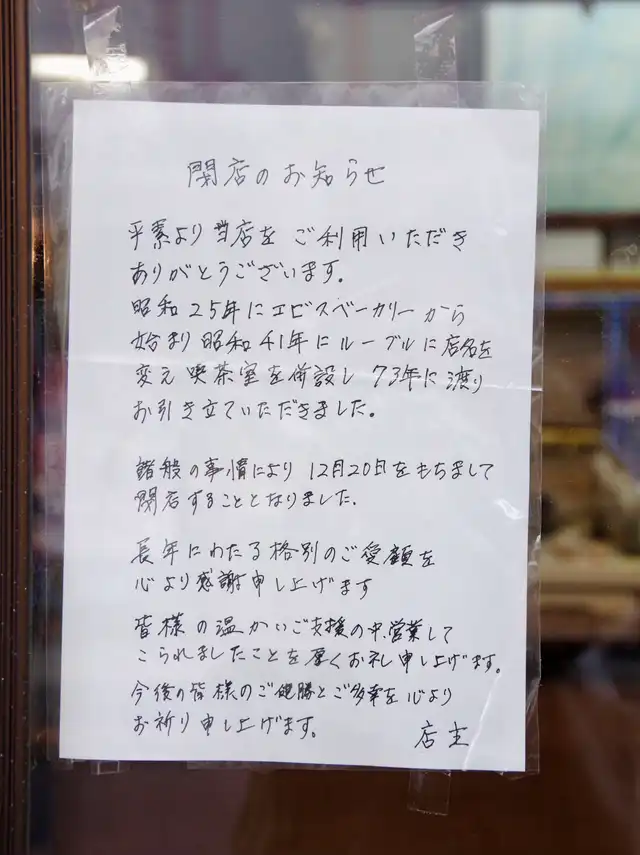 閉店のお知らせ
平素より当店をご利用いただき
ありがとうございます。
昭和25年にエビスベーカリーから
始まり昭和41年にルーブルに店名を
変え喫茶室を併設し73年に渡り
お引き立ていただきました。
諸般の事情により12月20日をもちまして
閉店することとなりました。
長年にわたる格別のご愛顧を
心より感謝申し上げます
皆様の温かいご支援の中、営業して
こられましたことを厚くお礼申し上げます。
今後の皆様のご健勝とご多幸を心より
お祈り申し上げます。
店主